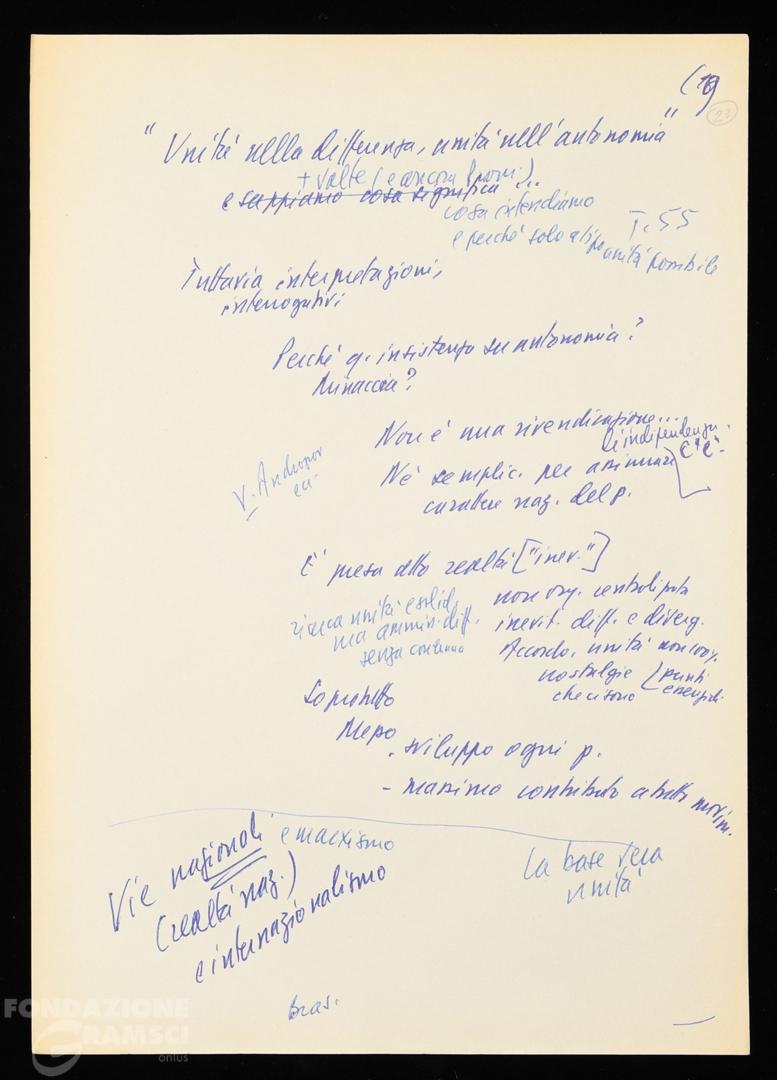 (19
23
"Unità nella differenza, unità nell'autonomia"
+ volte (e ancora
e sappiamo cosa significa...
cosa intendiamo
e perché solo
T. 55
unità possibile
Tuttavia interpretazioni,
interrogativi
Perché q. insistenza su autonomia?
Minaccia?
Non è una rivendicazione...
di indipendenza.
Né semplic. per
c'è.
carattere naz. del p.
V. Andropov
È presa atto realtà ["inev."]
non org. centralizzata
ricerca unità e solid.
inevit. diff. e diverg.
ma ammiss. diff.
Accordo, unità non
senza
nostalgie
punti
che ci sono
Soprattutto
Mezzo
. sviluppo ogni p.
- massimo contributo a tutto movim.
Vie nazionali e marxismo
(realtà naz.)
e internazionalismo
La base vera
unità
Bras.
FONDAZIONE
GRAMSCI
onlus